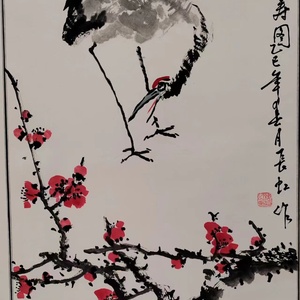 寿图乙巳年春月长虹作